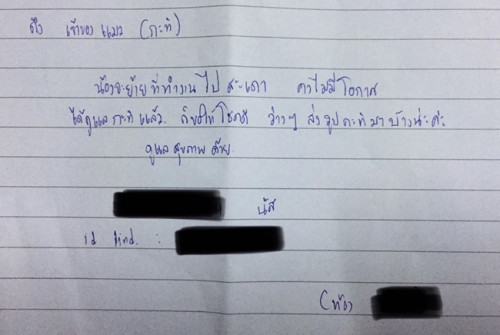 ถึง เจ้าของแมว (กะทิ)
น้องจะย้ายที่ทำงานไปสะเดา คงไม่มีโอกาส
ได้ดูแลกะทิแล้ว ก็ขอให้โชคดี ว่างๆ ส่งรูปกะทิมาบ้างน่ะค่ะ
ดูแลสุขภาพด้วย
นัส
id line. :
(ห้อง